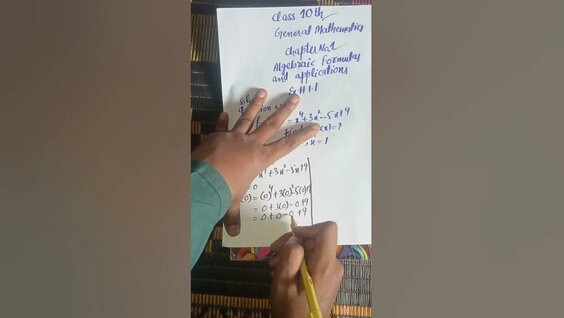 Class 10th
General Mathematics
Chapter No.1
Algebraic Formulas
and applications
Ex # 1.1
= x⁴+3x²-5x+9
(x)=?
x = 1
x⁴+3x²-5x+9
= 0
(0) = (0)⁴+3(0)²-5(0)+9
= 0+3(0)-0+9
= 0+0-0+9